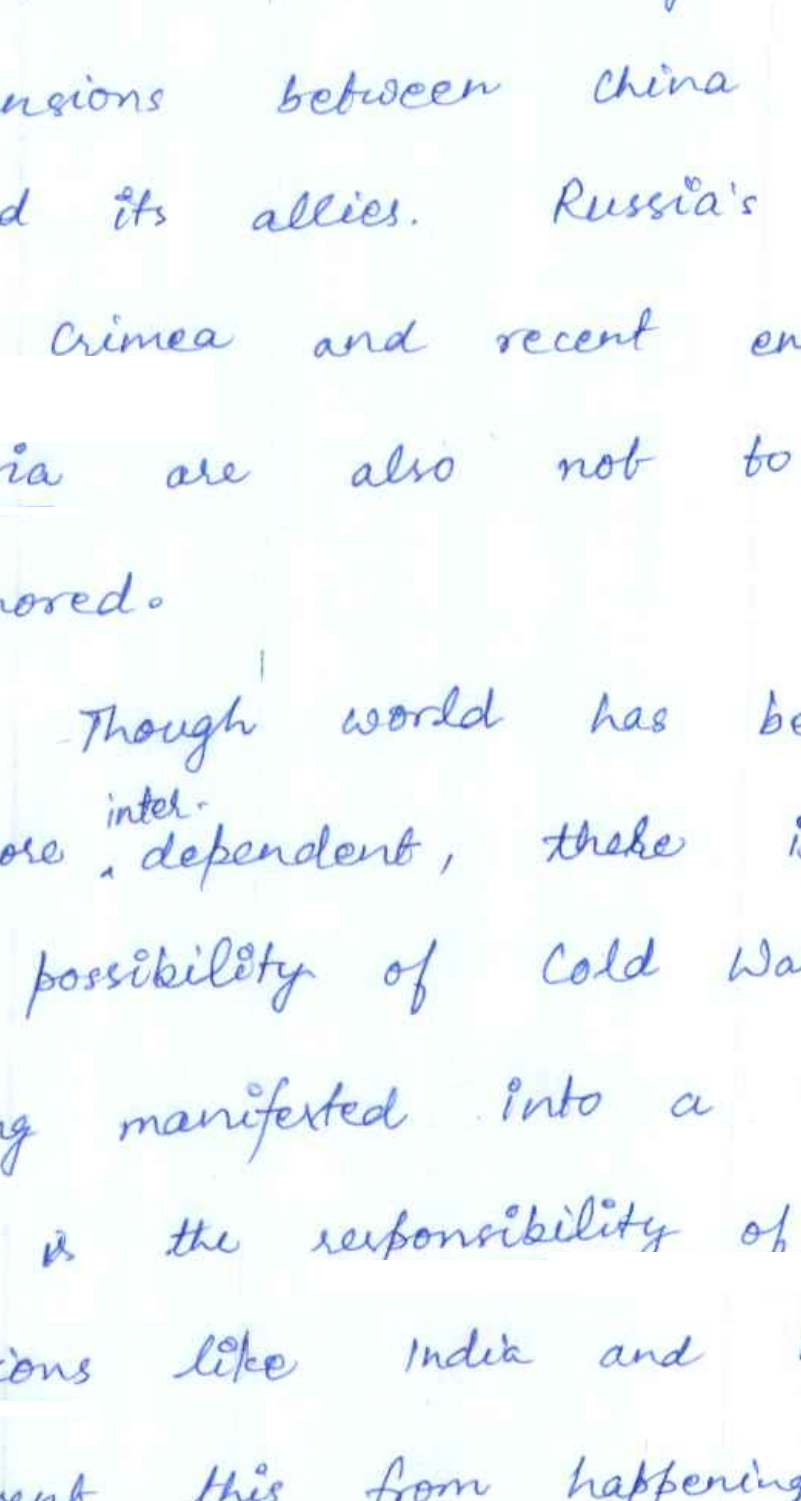 nsions between China
d its allies. Russia's
Crimea and recent en
ria are also not to
nored.
Though world has be
inter-
ore dependent, there is
possibility of Cold Wa
ng manifested into a
is the responsibility of
ions like India and
ent this from happening